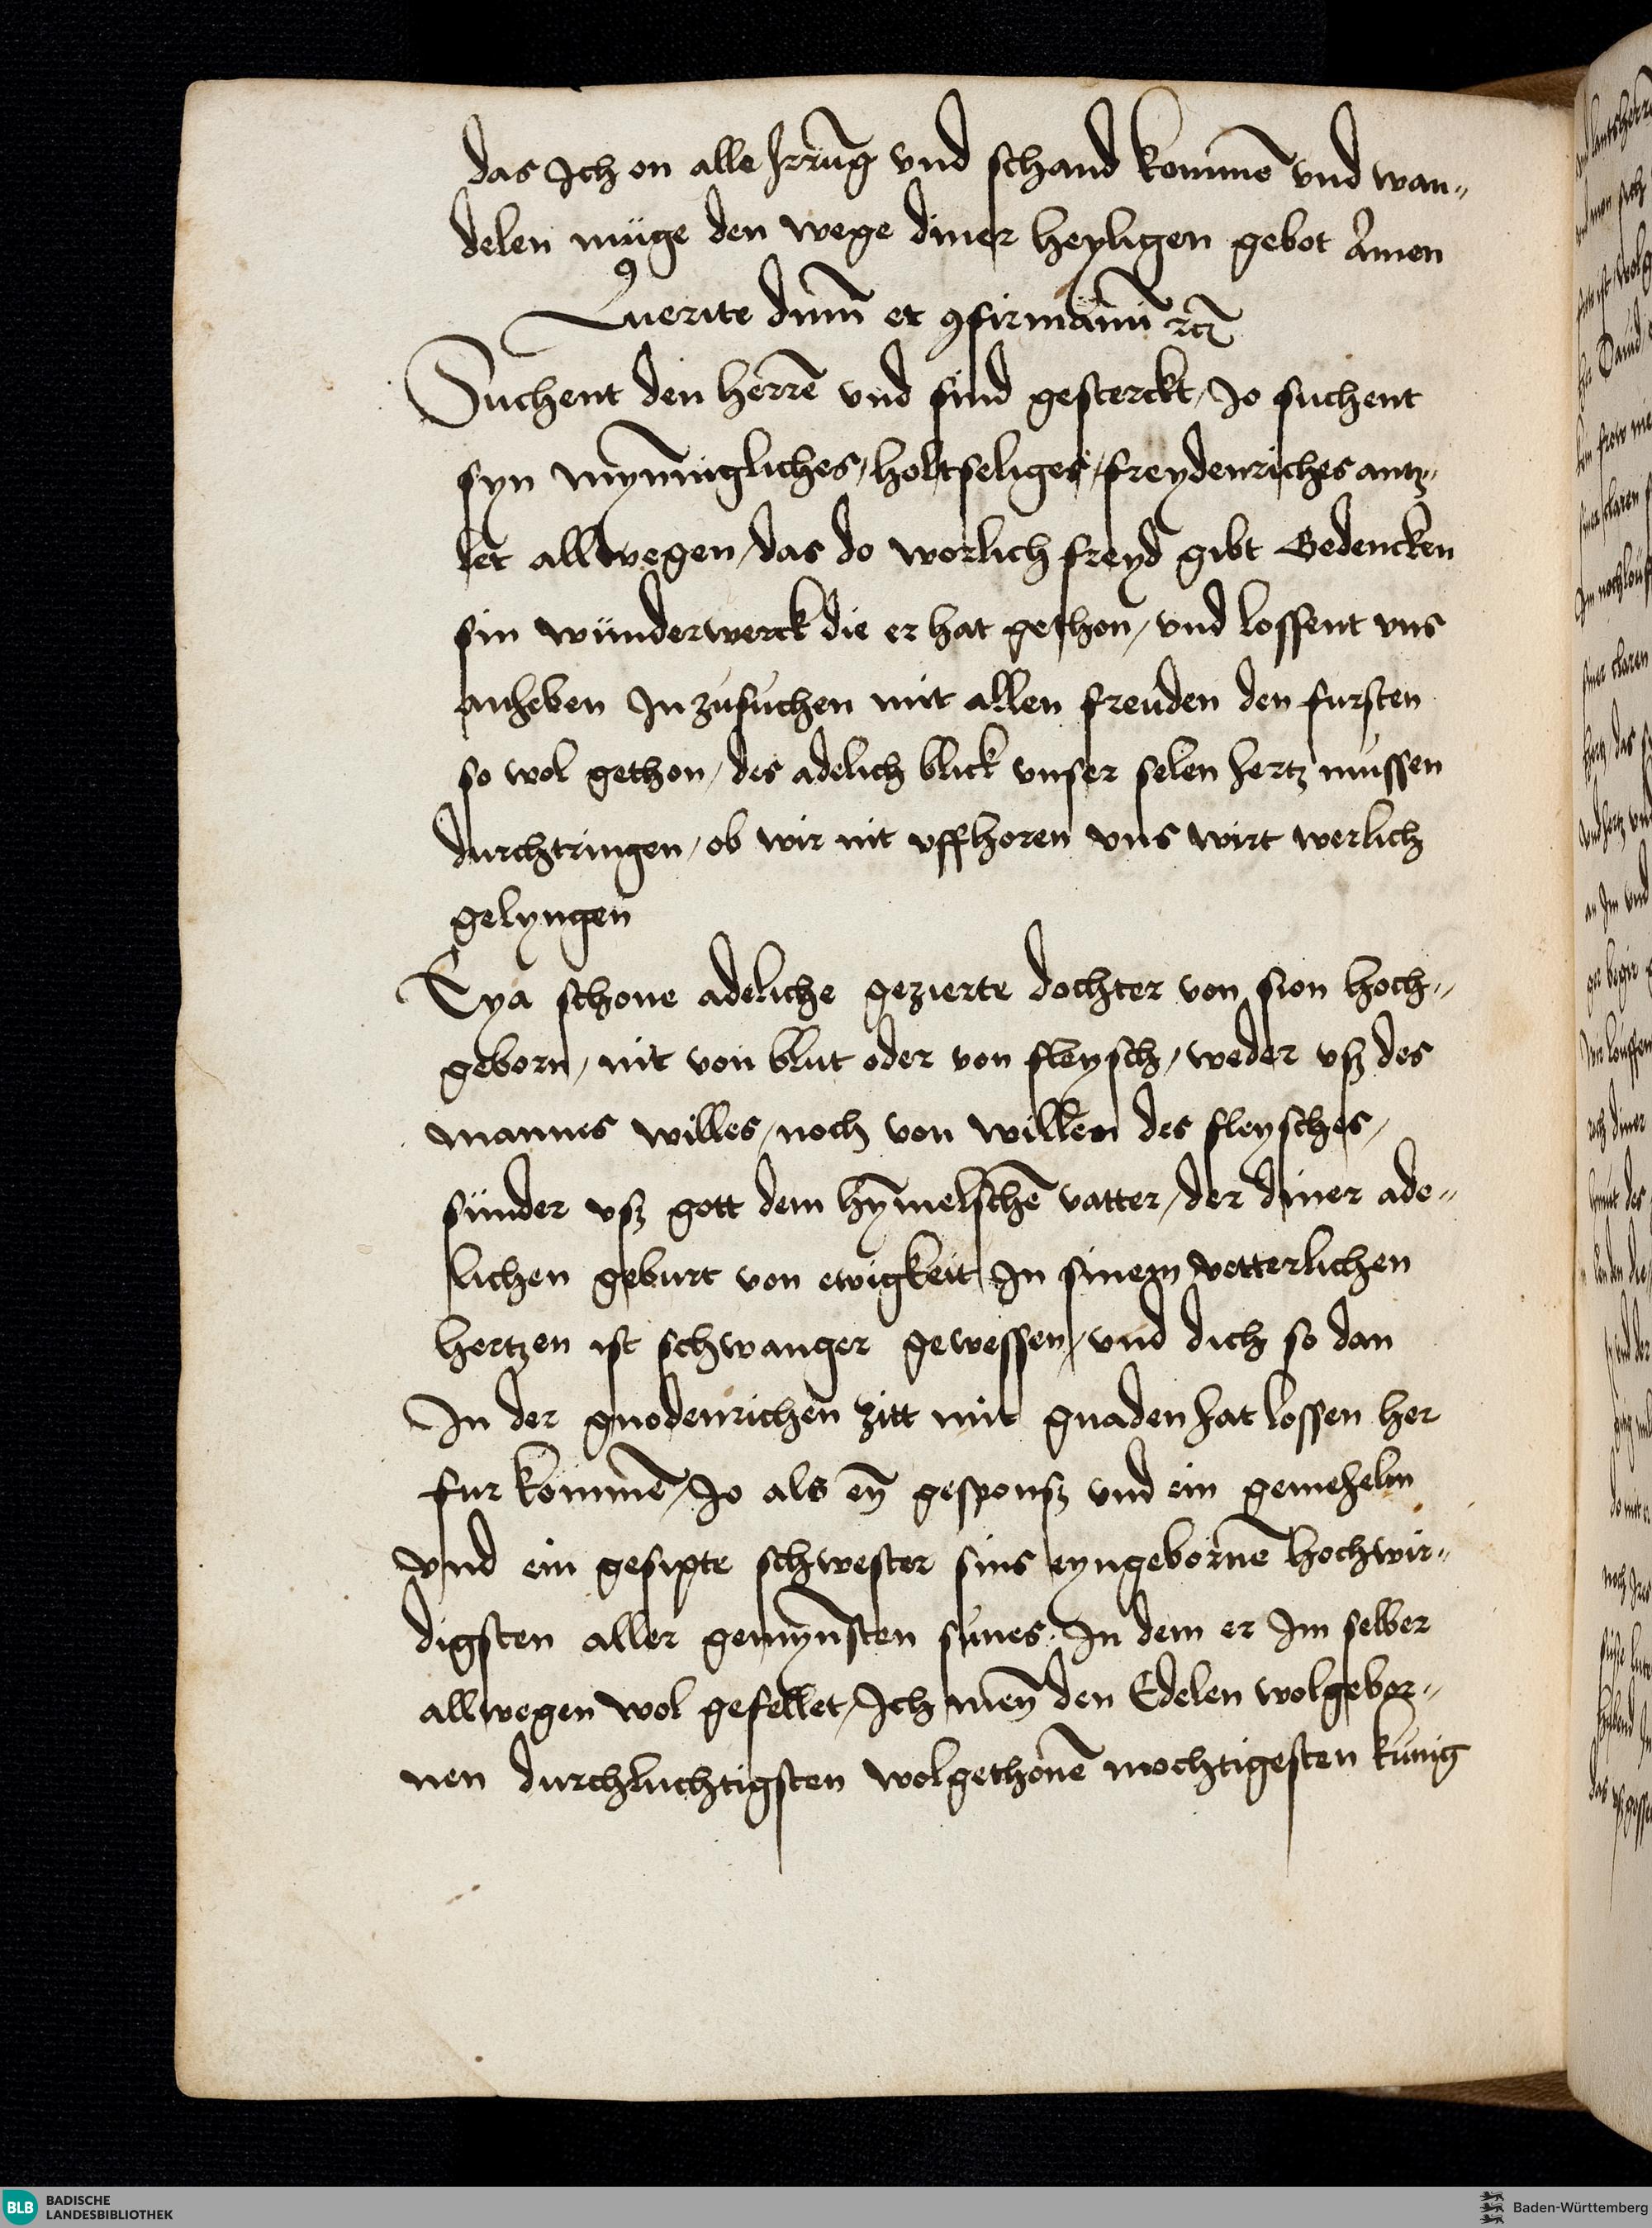 das Ich on alle Irrūg vnd schand kommē vnd wan„
delen müge den wege diner heyligen gebot Amen
Querite dnm̄ et ꝯfirmamī rcꝫ
Suchent den herrē vnd sind gesterckt / Jo suchent
syn mȳnigliches / holtseliges / freydenriches antz„
let allwegen / das do worlich freyd gibt Gedencken
sin wünderwerck die er hat gethon / vnd lossent vns
anheben In zusuchen mit allen freuden den fursten
so wol gethon / des adelich blick vnser selen hertz mussen
durchtringen / ob wir nit vffhoren vns wirt werlich
gelyngen
Eya schone adeliche gezierte dochter von sion hoch„
geborn / nit von blut oder von fleysch / weder vsz des
mannes willes / noch von willen des fleysches /
sünder vsz gott dem hȳmelschē vatter / der diner ade„
lichen geburt von ewigkeit In sinem vetterlichen
hertzen ist schwanger gewessen / vnd dich so dan
In der gnodenrichen zitt mit gnaden hat lossen her
fur kommē / Jo als eȳ gesponsz vnd ein gemeheln
vnd ein gesipte schwester sins eyngebornē hochwir„
digsten aller gemȳnsten sunes / In dem er Im selber
allwegen wol gefellet / Ich meȳ den Edelen wolgebor„
nen durchluchtigsten wolgethonē mechtigesten kunig
BLB BADISCHE
LANDESBIBLIOTHEK
Baden-Württemberg